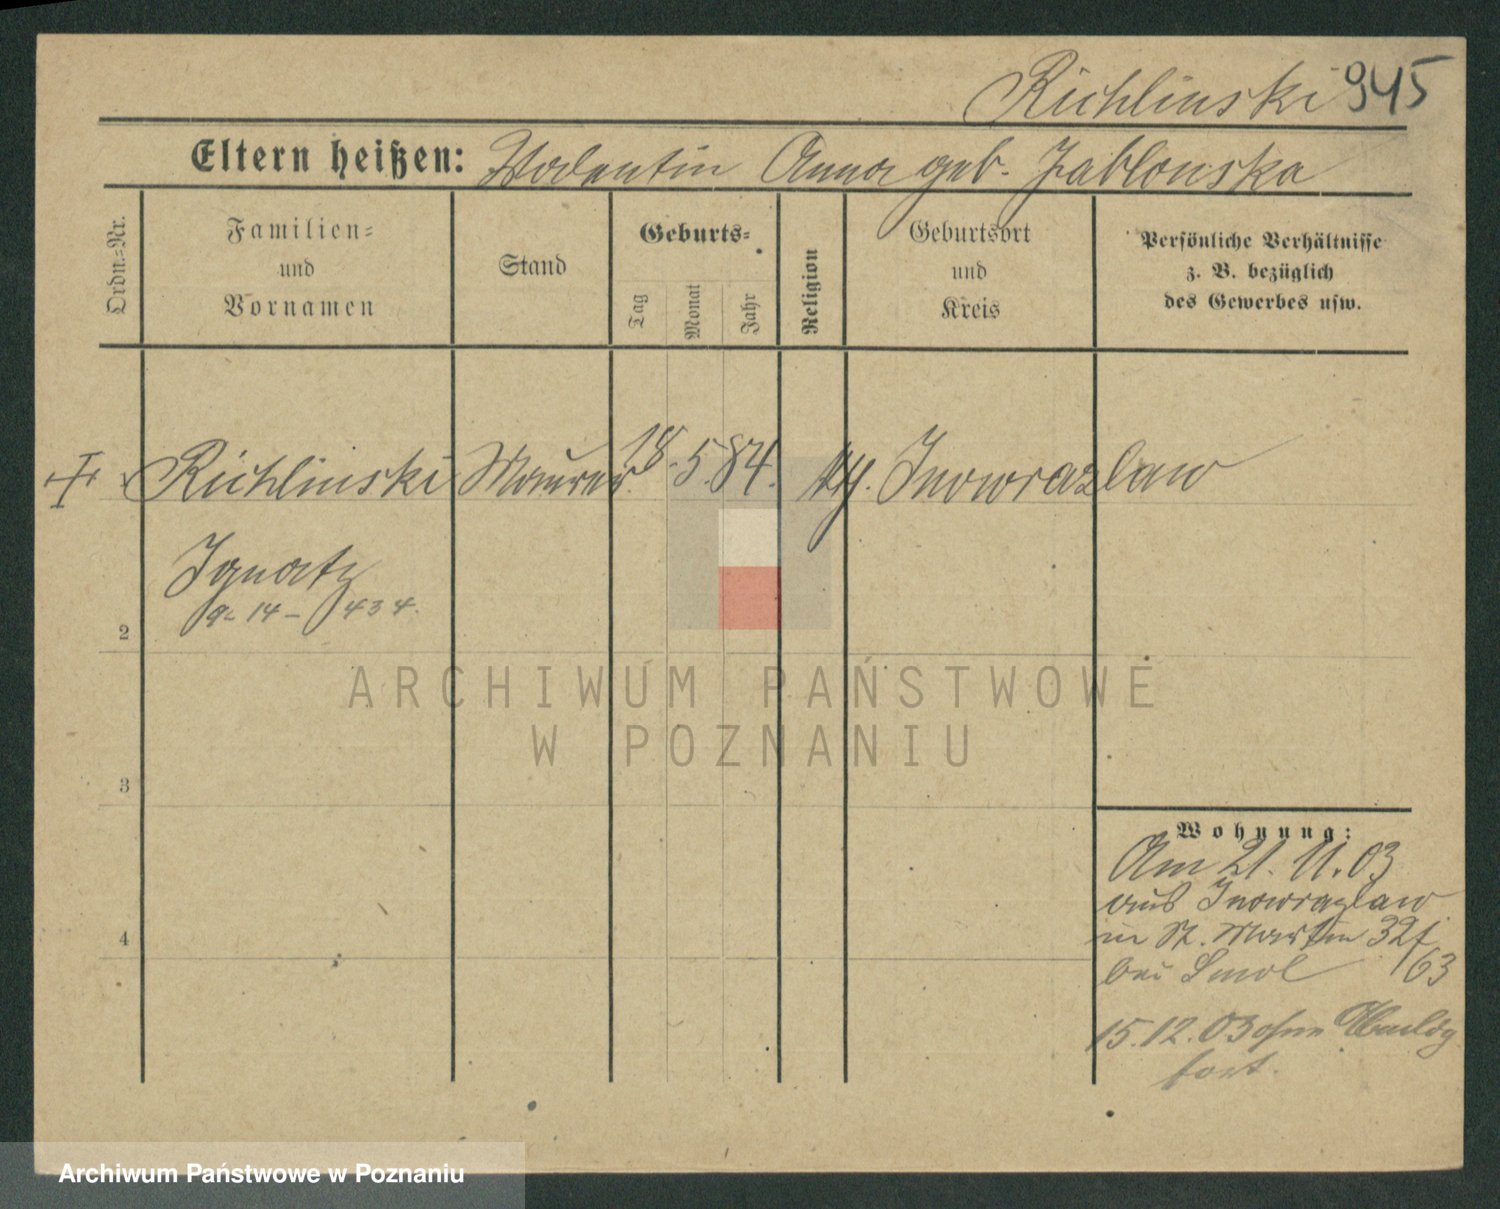 Richlinski 945
Eltern heißen: Walentin Anna geb. Jablonska
Ordn.-Nr.
Familien-
und
Vornamen
Stand
Geburts-
Tag
Monat
Jahr
Religion
Geburtsort
und
Kreis
Persönliche Verhältnisse
z. B. bezüglich
des Gewerbes usw.
Richlinski Maurer 18. 5. 84. Inowrazlaw
Ignatz
14 - 434.
2
3
4
Wohnung:
Am 21. 11. 03
aus Inowrazlaw
in St. Martin 32
bei Smol 63
15. 12. 03 ohne
fort.
ARCHIWUM PAŃSTWOWE
W POZNANIU
Archiwum Państwowe w Poznaniu